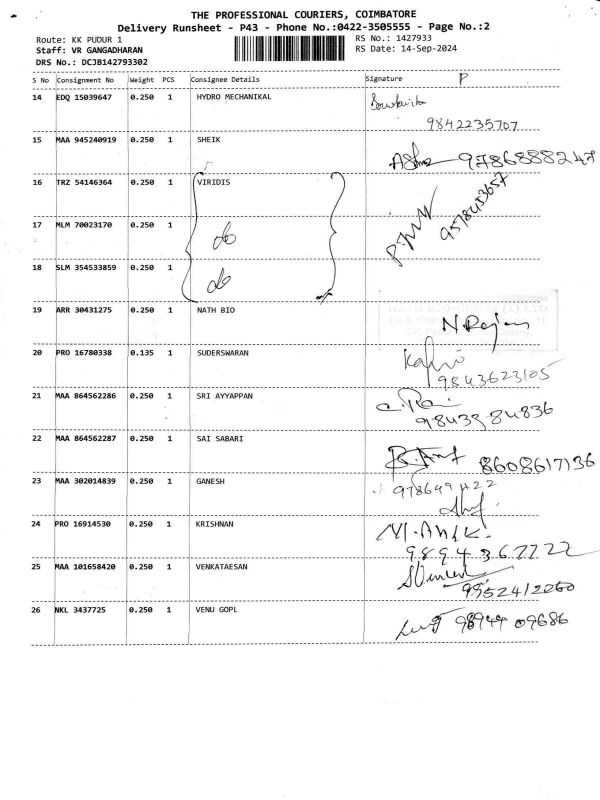 THE PROFESSIONAL COURIERS, COIMBATORE
Delivery Runsheet - P43 - Phone No.:0422-3505555 - Page No.:2
Route: KK PUDUR 1 RS No.: 1427933
Staff: VR GANGADHARAN RS Date: 14-Sep-2024
DRS No.: DCJB142793302
S No Consignment No Weight PCS Consignee Details Signature P
14 EDQ 15039647 0.250 1 HYDRO MECHANIKAL
9842235707
15 MAA 945240919 0.250 1 SHEIK
9786888247
16 TRZ 54146364 0.250 1 VIRIDIS
9578453657
17 MLM 70023170 0.250 1 do
18 SLM 354533859 0.250 1 do
19 ARR 30431275 0.250 1 NATH BIO
N. Rajan
20 PRO 16780338 0.135 1 SUDERSWARAN
9843623105
21 MAA 864562286 0.250 1 SRI AYYAPPAN
9843384836
22 MAA 864562287 0.250 1 SAI SABARI
8608617136
23 MAA 302014839 0.250 1 GANESH
24 PRO 16914530 0.250 1 KRISHNAN
9894367722
25 MAA 101658420 0.250 1 VENKATAESAN
9952412060
26 NKL 3437725 0.250 1 VENU GOPL
98944 09686